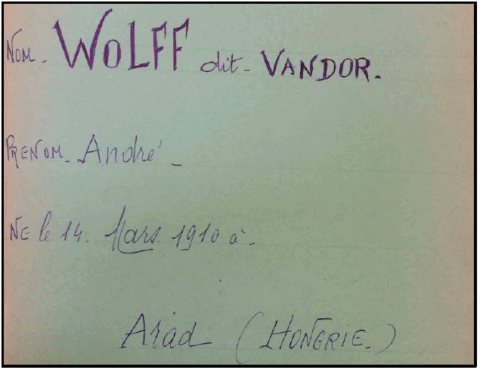 NOM. WOLFF dit. VANDOR.
PRENOM. André.
NE le 14. Mars 1910 à.
Arad (HONGRIE.)